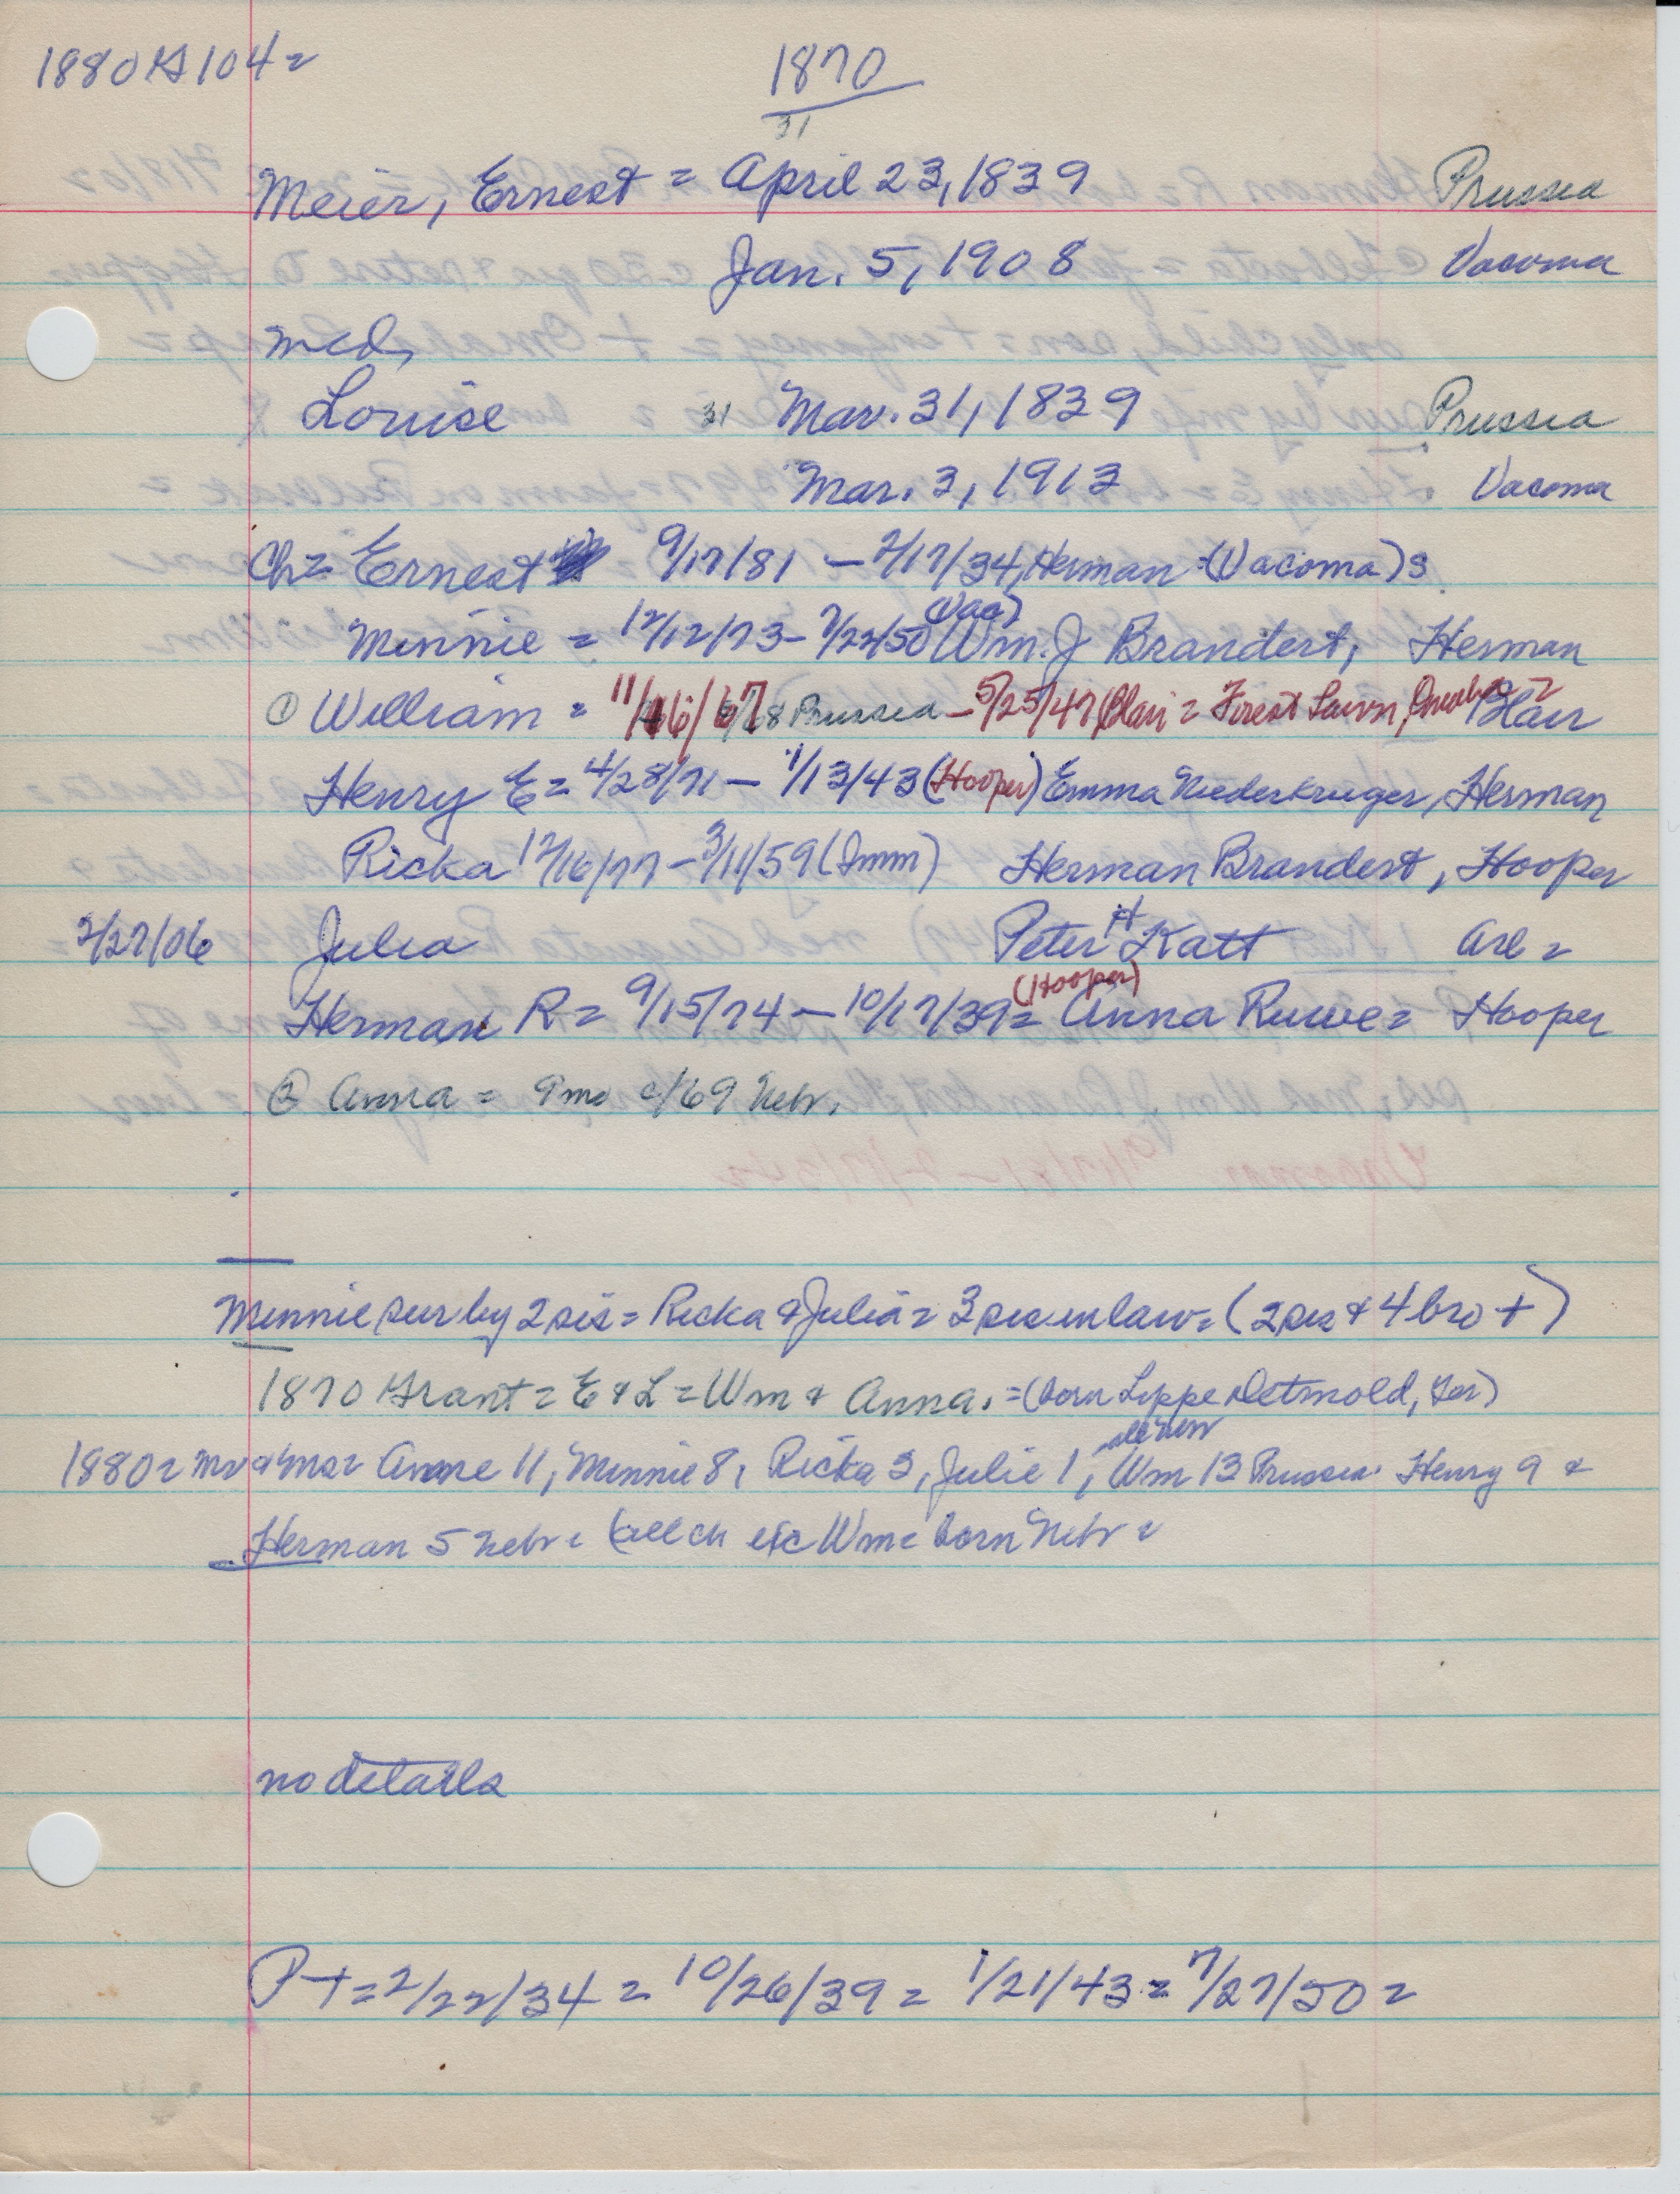 1880 G 104 =
1870
31
Meier, Ernest = April 23, 1839 Prussia
Jan. 5, 1908 Vacoma
med,
Louise 31 Mar. 31, 1839 Prussia
Mar. 3, 1913 Vacoma
Ch = Ernest 9/17/81 - 2/17/34, Herman (Vacoma) S
Minnie = 12/12/73 - 7/22/50 (Vac) Wm. J Brandert, Herman
① William = 11/16/67 Prussia - 5/25/47 (Blair = Forest Lawn, Omaha = Blair
Henry E = 4/28/71 - 1/13/43 (Hooper) Emma Niederkrueger, Herman
Ricka 12/16/77 - 3/11/59 (Imm) Herman Brandert, Hooper
2/27/06 Julia Peter H Katt Arl =
Herman R = 9/15/74 - 10/17/39 = (Hooper) Anna Ruwe = Hooper
② Anna = 9 mo 69 Nebr.
Minnie sur by 2 sis = Ricka & Julia = 3 sis in law = (2 sis & 4 bro +)
1870 Grant = E & L = Wm & Anna. = (born Lippe Detmold, Ger)
1880 = Mr & Mrs = Anne 11, Minnie 8, Ricka 3, Julie 1, all Nebr Wm 13 Prussia. Henry 9 &
Herman 5 Nebr = (all ch exc Wm = born Nebr =
no details
P T = 2/22/34 = 10/26/39 = 1/21/43 = 7/27/50 =